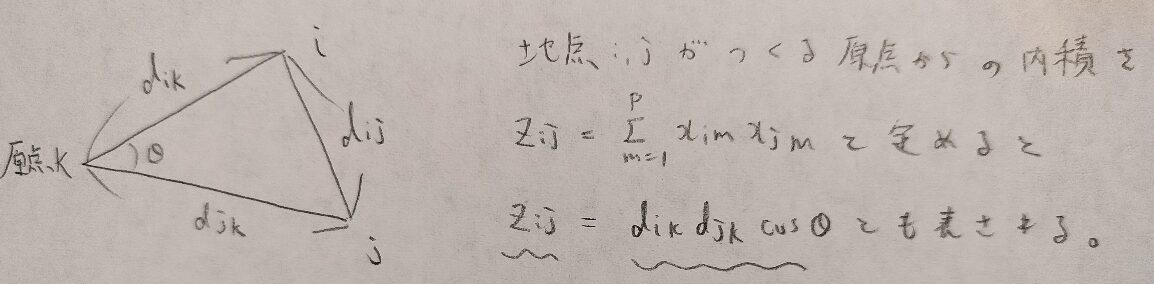 i
dik
dij
原点k
θ
djk
j
地点i,jがつくる原点からの内積を
zij = Σ[m=1→p] xim xjm と定めると
zij = dik djk cosθ とも表される。